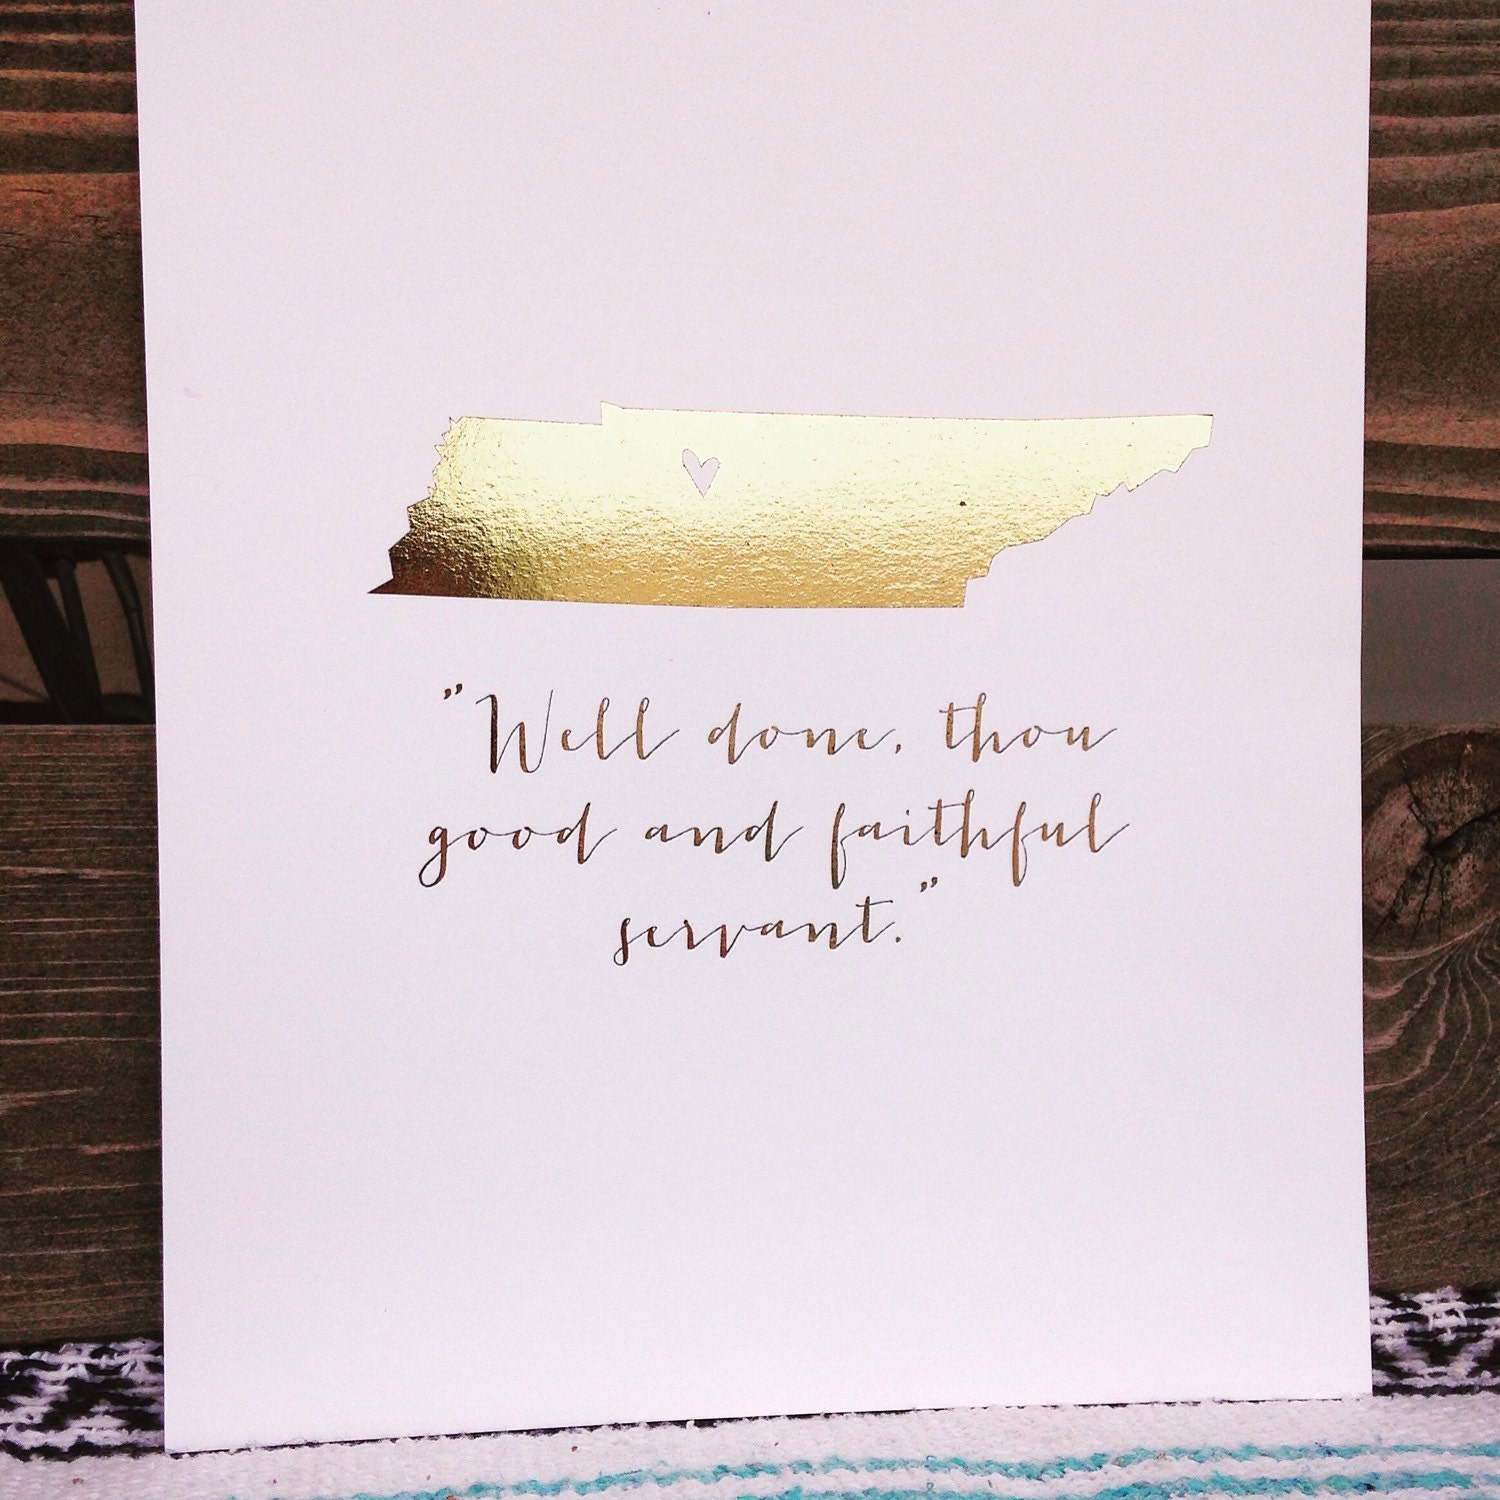 "Well done, thou
good and faithful
servant."